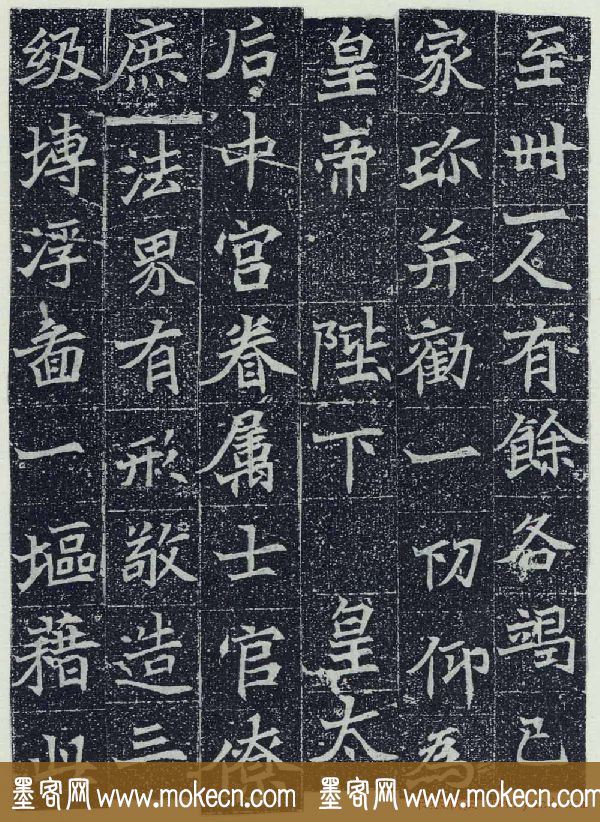 至卌一人有餘各竭己
家珎并勸一切仰為
皇帝陛下皇太
后中宫眷属士官僚
庶法界有形敬造三
级塼浮啚一塸藉此
墨客网 www.mokecn.com 墨客网 www.mokecn.com